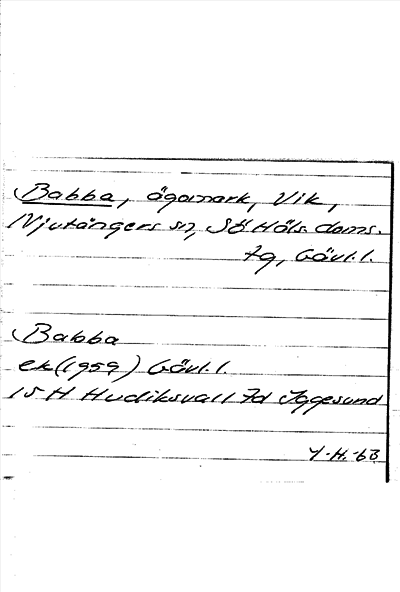 Babba, ägomark, Vik,
Njutångers sn, Sö Häls. doms.
tg, Gävl. l.
Babba
ek (1959) Gävl. l.
15 H Hudiksvall 7d Iggesund
Y-H. -63